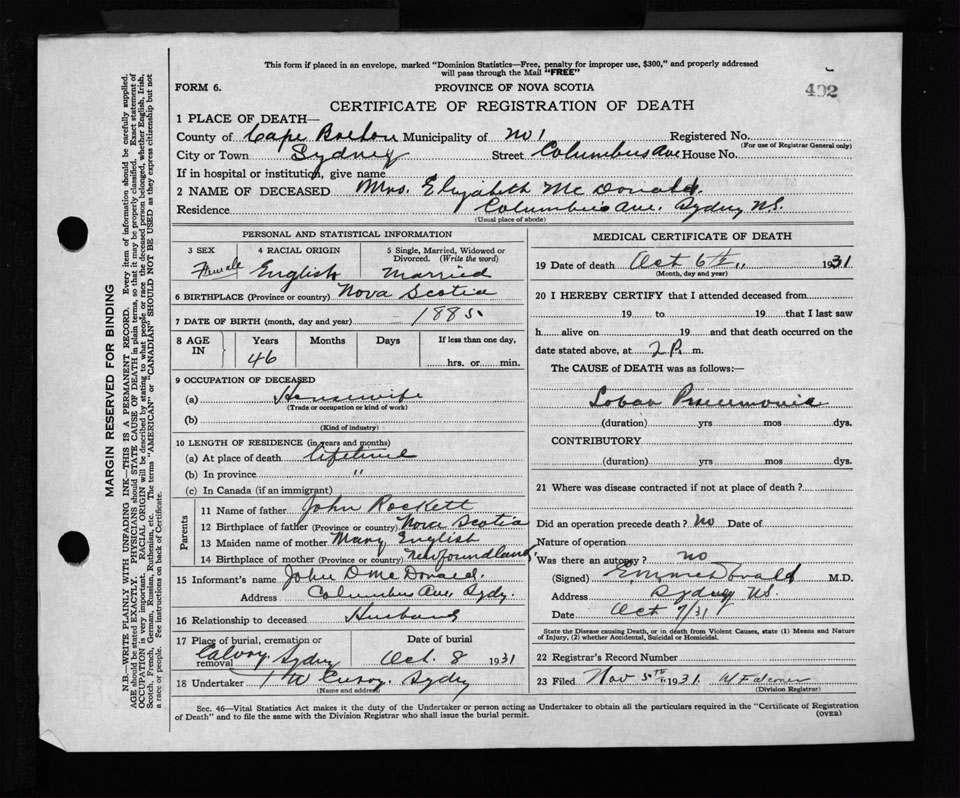 This form if placed in an envelope, marked "Dominion Statistics—Free, penalty for improper use, $300," and properly addressed
will pass through the Mail "FREE"
402
FORM 6.
PROVINCE OF NOVA SCOTIA
CERTIFICATE OF REGISTRATION OF DEATH
1 PLACE OF DEATH—
County of Cape Breton Municipality of No 1 Registered No.
(For use of Registrar General only)
City or Town Sydney Street Columbus Ave House No.
If in hospital or institution, give name
2 NAME OF DECEASED Mrs. Elizabeth McDonald.
Residence Columbus Ave. Sydney N.S.
(Usual place of abode)
PERSONAL AND STATISTICAL INFORMATION
3 SEX 4 RACIAL ORIGIN 5 Single, Married, Widowed or
Divorced. (Write the word)
Female English Married
6 BIRTHPLACE (Province or country) Nova Scotia
7 DATE OF BIRTH (month, day and year) 1885
8 AGE IN Years Months Days If less than one day,
46 hrs. or min.
9 OCCUPATION OF DECEASED
(a) Housewife
(Trade or occupation or kind of work)
(b)
(Kind of industry)
10 LENGTH OF RESIDENCE (in years and months)
(a) At place of death lifetime
(b) In province "
(c) In Canada (if an immigrant)
Parents
11 Name of father John Rockett
12 Birthplace of father (Province or country) Nova Scotia
13 Maiden name of mother Mary English
14 Birthplace of mother (Province or country) Newfoundland
15 Informant's name John D McDonald.
Address Columbus Ave, Sydy.
16 Relationship to deceased Husband
17 Place of burial, cremation or
removal Calvory Sydney
Date of burial
Oct. 8 1931
18 Undertaker Sydney
(Name and address)
MEDICAL CERTIFICATE OF DEATH
19 Date of death Oct 6th " 1931
(Month, day and year)
20 I HEREBY CERTIFY that I attended deceased from
19 to 19 that I last saw
h alive on 19 and that death occurred on the
date stated above, at 2 P. m.
The CAUSE of DEATH was as follows:—
Lobar Pneumonia
(duration) yrs mos dys.
CONTRIBUTORY
(duration) yrs mos dys.
21 Where was disease contracted if not at place of death?
Did an operation precede death? No Date of
Nature of operation
Was there an autopsy? no
(Signed) M.D.
Address Sydney N.S.
Date Oct 7/31
State the Disease causing Death, or in death from Violent Causes, state (1) Means and Nature
of Injury, (2) whether Accidental, Suicidal or Homicidal.
22 Registrar's Record Number
23 Filed Nov 5th 1931 W Falconer
(Division Registrar)
Sec. 46—Vital Statistics Act makes it the duty of the Undertaker or person acting as Undertaker to obtain all the particulars required in the "Certificate of Registration
of Death" and to file the same with the Division Registrar who shall issue the burial permit.
(OVER)
MARGIN RESERVED FOR BINDING
N.B.—WRITE PLAINLY WITH UNFADING INK—THIS IS A PERMANENT RECORD. Every item of information should be carefully supplied.
AGE should be stated EXACTLY. PHYSICIANS should STATE CAUSE OF DEATH in plain terms, so that it may be properly classified. Exact statement of
OCCUPATION is very important. RACIAL ORIGIN will be described by stating to what people or race the deceased person belonged, whether English, Irish,
Scotch, French, German, Russian, Ruthenian, etc. The terms "AMERICAN" or "CANADIAN" SHOULD NOT BE USED as they express citizenship but not
a race or people. See instructions on back of Certificate.